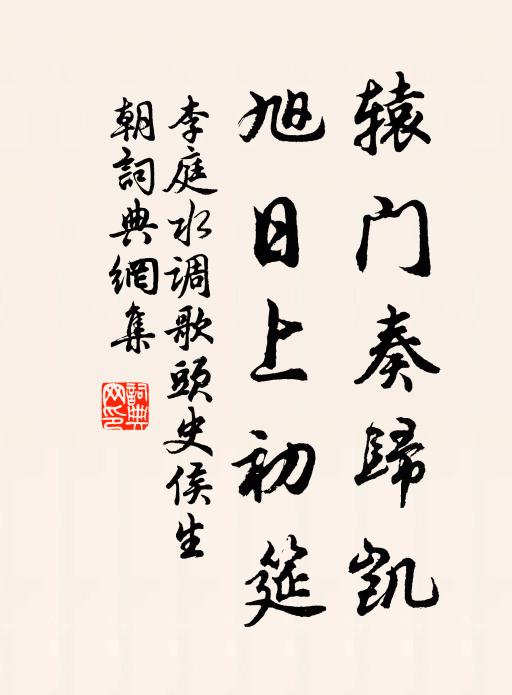 辕门奏歸凯
旭日上初筵
李庭水调歌頭史侯生
朝詞典網集
詞典網印